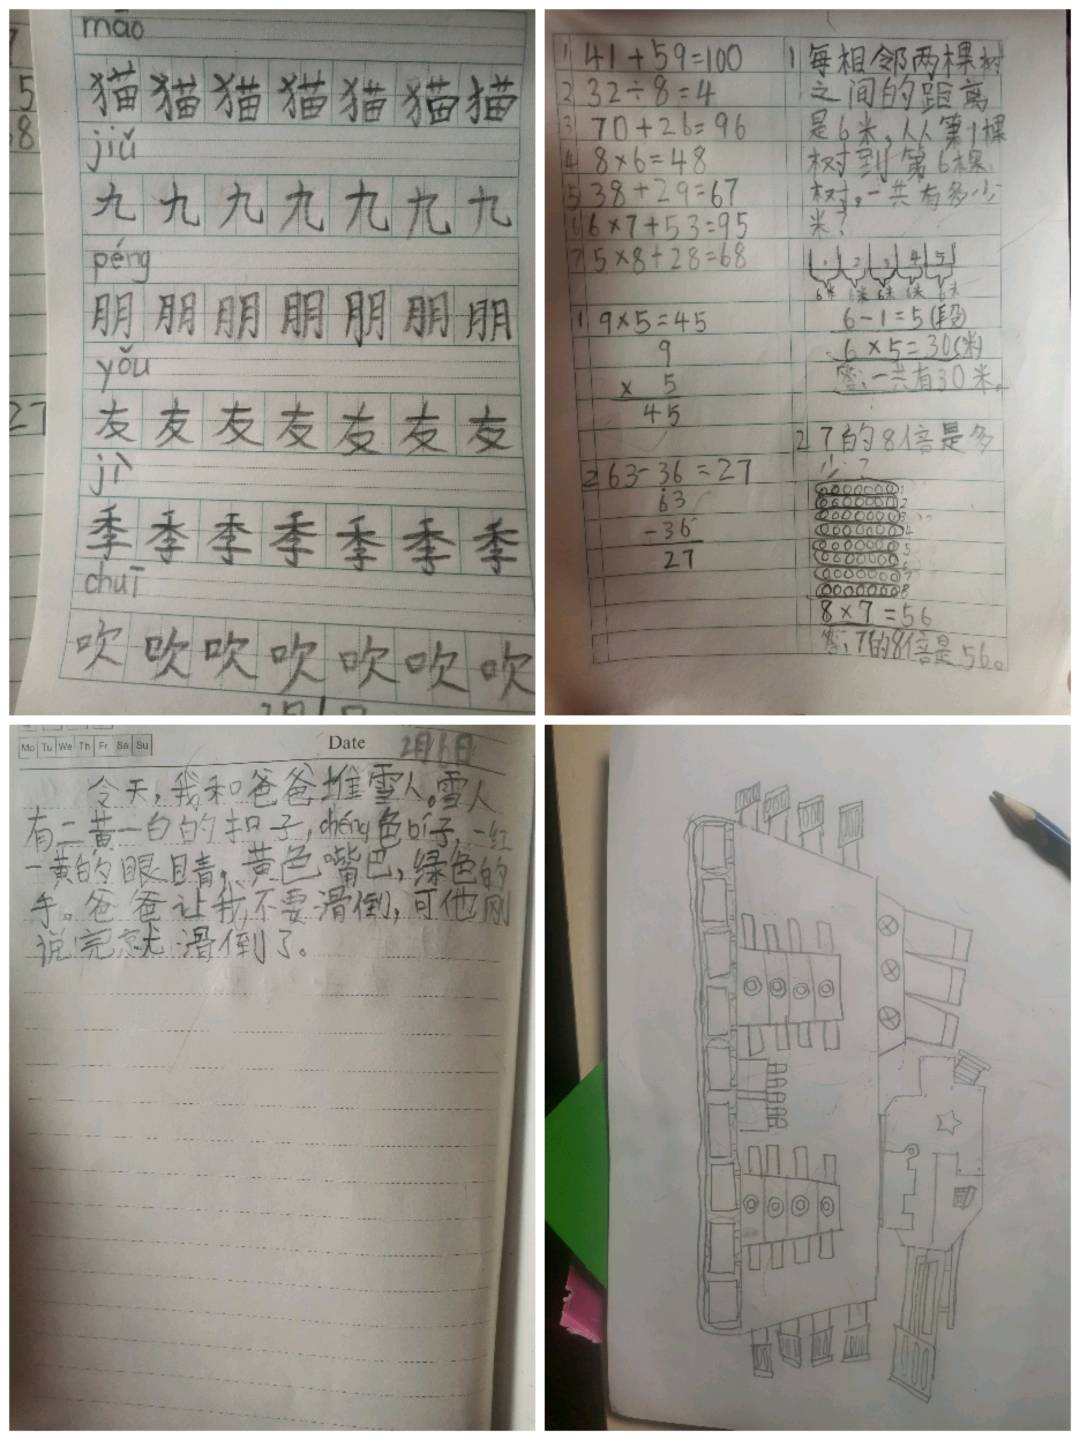 māo
猫猫猫猫猫猫猫
jiǔ
九九九九九九九
péng
朋朋朋朋朋朋朋
yǒu
友友友友友友友
jì
季季季季季季季
chuī
吹吹吹吹吹吹吹
5
8
27
1 41+59=100
2 32÷8=4
3 70+26=96
4 8×6=48
5 38+29=67
6 6×7+53=95
7 5×8+28=68
1 9×5=45
9
× 5
45
2 63-36=27
63
-36
27
1 每相邻两棵树
之间的距离
是6米,从第1棵
树到第6棵
树,一共有多少
米?
1 2 3 4 5
6米 6米 6米 6米 6米
6-1=5(段)
6×5=30(米)
答:一共有30米。
2 7的8倍是多
少?
1
2
3
4
5
6
7
8
8×7=56
答:7的8倍是56。
Mo Tu We Th Fr Sa Su
Date 2月6日
今天,我和爸爸堆雪人。雪人
有二黄一白的扣子,chéng色bí子,一红
一黄的眼睛,黄色嘴巴,绿色的
手。爸爸让我不要滑倒,可他刚
说完就滑倒了。